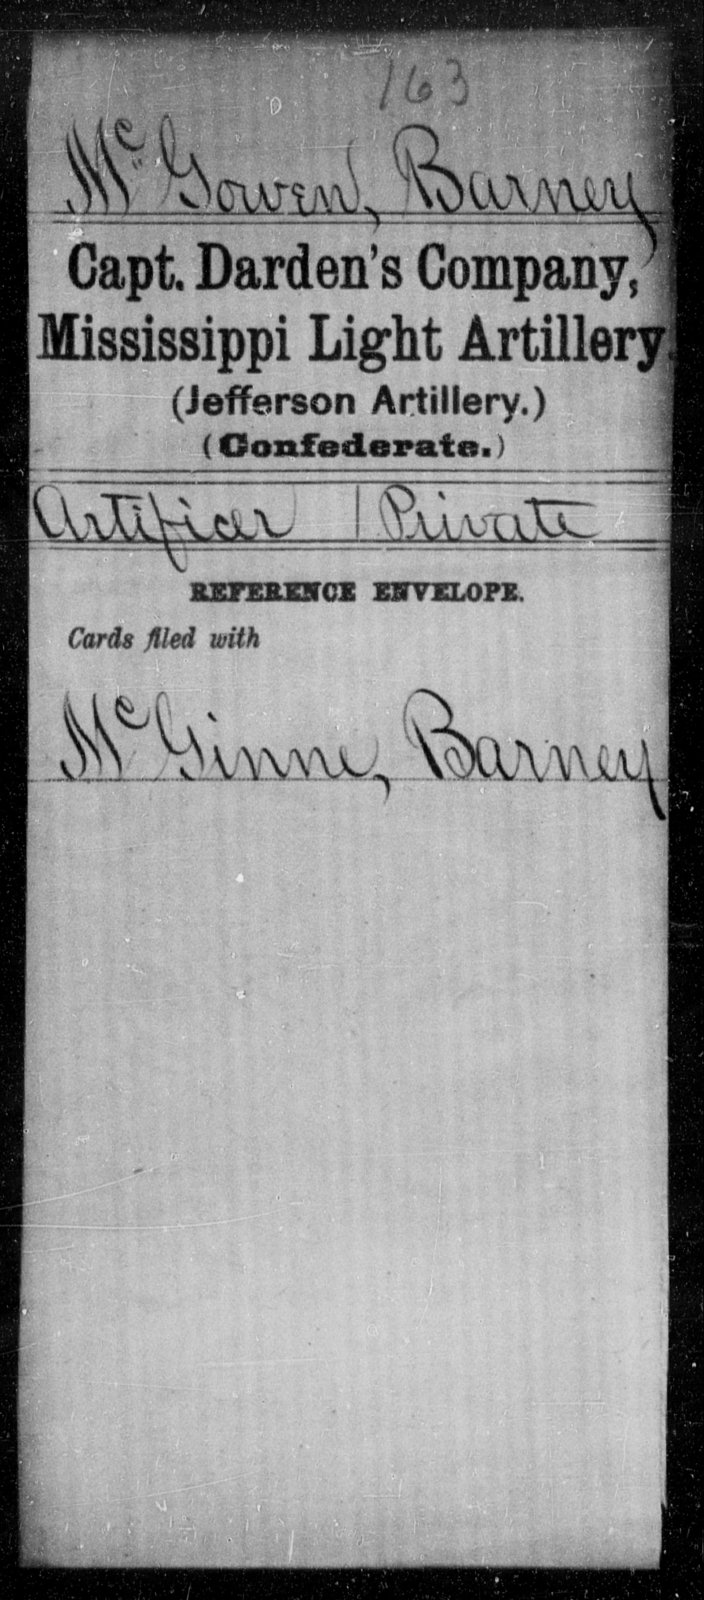 163
McGowen, Barney
Capt. Darden's Company,
Mississippi Light Artillery.
(Jefferson Artillery.)
(Confederate.)
Artificer | Private
REFERENCE ENVELOPE.
Cards filed with
McGinne, Barney